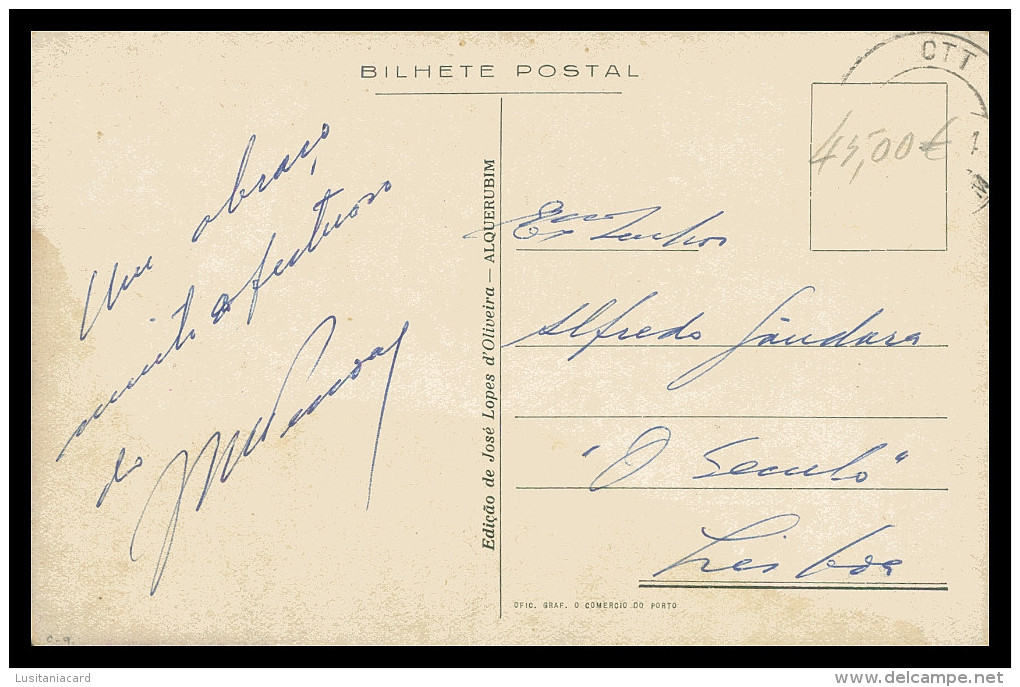 BILHETE POSTAL
CTT
45,00 €
1
Um abraço,
muito afectuoso
do
Edição de José Lopes d'Oliveira — ALQUERUBIM
Exmo Senhor
Alfredo Gândara
"O Seculo"
Lisboa
OFIC. GRAF. O COMERCIO DO PORTO
C-9.
Lusitaniacard
www.delcampe.net